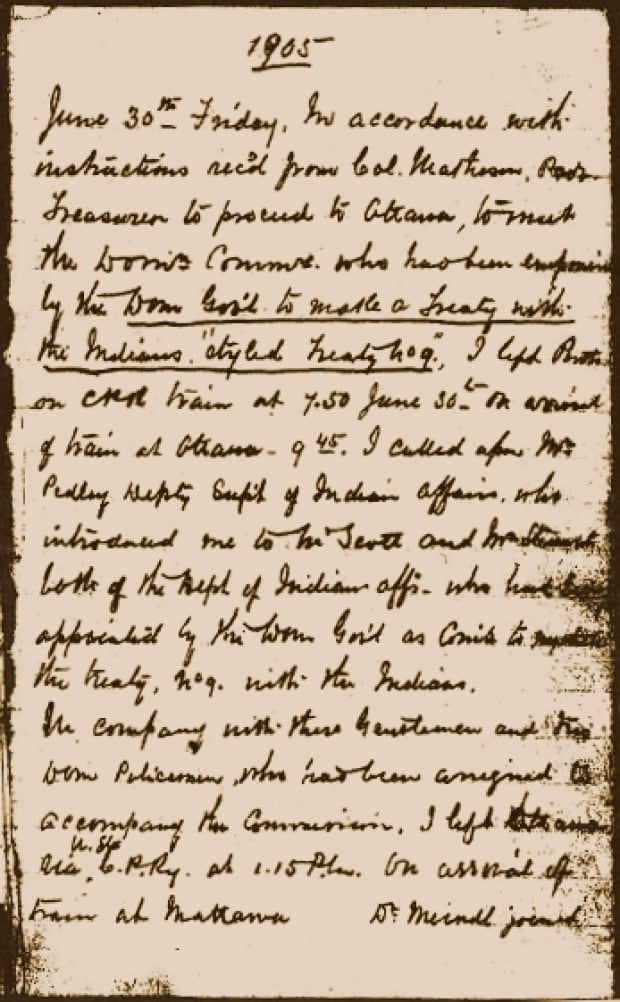 1905
June 30th Friday, In accordance with
instructions rec'd from Col. Matheson,
Treasurer to proceed to Ottawa, to meet
the Dom'n who had been
by the Dom Gov't to make a Treaty with
the Indians "styled Treaty No 9", I left
on train at 7.50 June 30th On arrival
of train at Ottawa - 9 45. I called upon Mr
Pedley Depty Supt of Indian Affairs, who
introduced me to Mr Scott and Mr Stewart
both of the Dept of Indian Affs - who had been
appointed by the Dom Gov't as to
the treaty, No 9. with the Indians.
In company with these Gentlemen and two
Dom Policemen, who had been assigned to
accompany the Commission, I left Ottawa
via C.P.Ry. at 1.15 P.M. On arrival of
train at Mattawa Dr Meindl joined